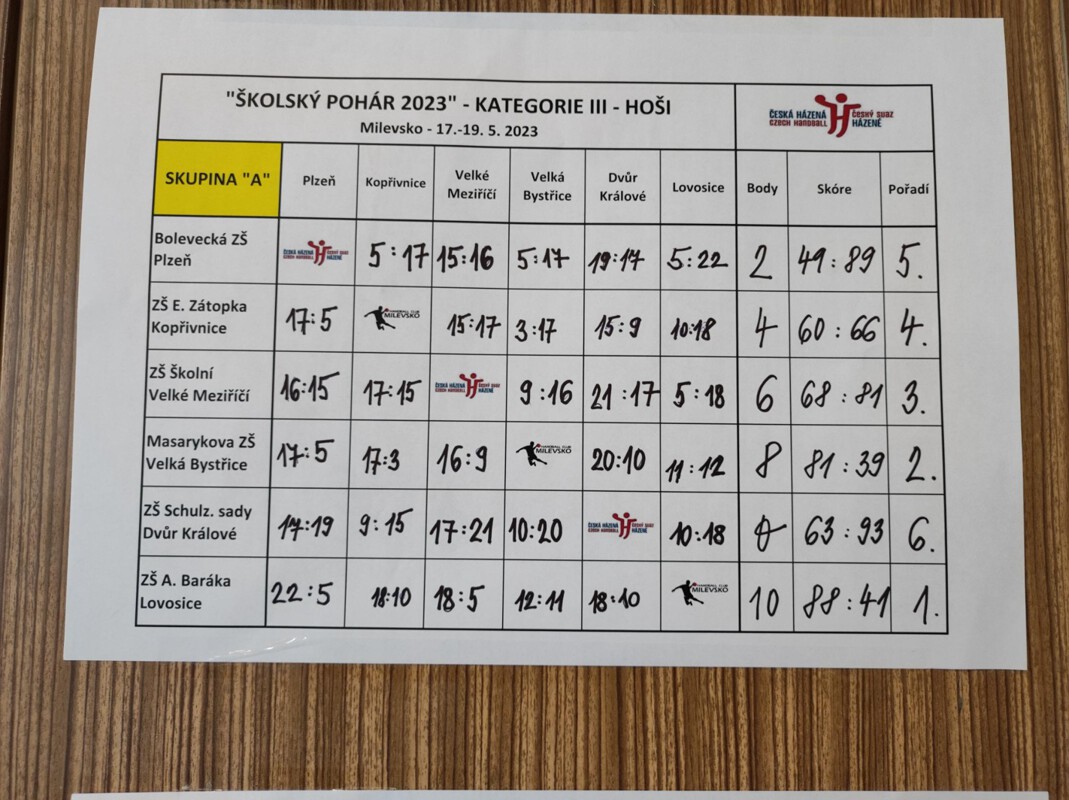 "ŠKOLSKÝ POHÁR 2023" - KATEGORIE III - HOŠI
Milevsko - 17.-19. 5. 2023
ČESKÁ HÁZENÁ
CZECH HANDBALL
ČESKÝ SVAZ
HÁZENÉ
SKUPINA "A" Plzeň Kopřivnice Velké Meziříčí Velká Bystřice Dvůr Králové Lovosice Body Skóre Pořadí
Bolevecká ZŠ
Plzeň
ČESKÁ HÁZENÁ
CZECH HANDBALL
ČESKÝ SVAZ
HÁZENÉ
5:17 15:16 5:17 19:17 5:22 2 49:89 5.
ZŠ E. Zátopka
Kopřivnice
17:5
HANDBALL CLUB
MILEVSKO
15:17 3:17 15:9 10:18 4 60:66 4.
ZŠ Školní
Velké Meziříčí
16:15 17:15
ČESKÁ HÁZENÁ
CZECH HANDBALL
ČESKÝ SVAZ
HÁZENÉ
9:16 21:17 5:18 6 68:81 3.
Masarykova ZŠ
Velká Bystřice
17:5 17:3 16:9
HANDBALL CLUB
MILEVSKO
20:10 11:12 8 81:39 2.
ZŠ Schulz. sady
Dvůr Králové
17:19 9:15 17:21 10:20
ČESKÁ HÁZENÁ
CZECH HANDBALL
ČESKÝ SVAZ
HÁZENÉ
10:18 0 63:93 6.
ZŠ A. Baráka
Lovosice
22:5 18:10 18:5 12:11 18:10
HANDBALL CLUB
MILEVSKO
10 88:41 1.